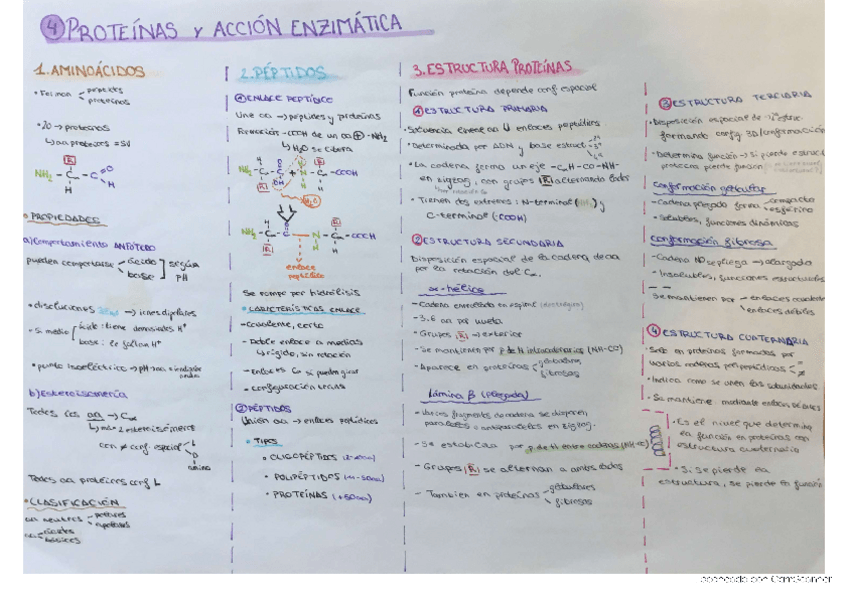 4 PROTEÍNAS Y ACCIÓN ENZIMÁTICA
1. AMINOÁCIDOS
• Forman péptidos
proteínas
• 20 → proteínas
NH₂ - C - C
R
H
O
H
• PROPIEDADES
a) Comportamiento ANFÓTERO
pueden comportarse ácido
base
según
pH
• disoluciones → iones dipolares
• Si medio ácido: tiene demasiados H⁺
base: le faltan H⁺
• punto isoeléctrico → pH
b) Estereoisomería
Todos los aa → Cα
con ≠ conf. espacial L
D
Todos aa proteicos conf L
• CLASIFICACIÓN
aa neutros polares
apolares
aa ácidos
básicos
2. PÉPTIDOS
1 ENLACE PEPTÍDICO
Une aa → péptidos y proteínas
Formación -COOH de un aa + -NH₂
↳ H₂O se libera
NH₂ - C - C + N - C - COOH
H₂O
NH₂ - C - C - N - C - COOH
enlace
peptídico
Se rompe por hidrólisis
• CARACTERÍSTICAS ENLACE
- Covalente, corto
- Doble enlace a medias
↳ rígido, sin rotación
- enlaces Cα si pueden girar
- configuración trans
2 PÉPTIDOS
Unión aa → enlaces peptídicos
• Tipos
• OLIGOPÉPTIDOS
• POLIPÉPTIDOS
• PROTEÍNAS
3. ESTRUCTURA PROTEÍNAS
Función proteína depende conf espacial
1 ESTRUCTURA PRIMARIA
• Secuencia lineal aa U enlaces peptídicos
• Determinada por ADN y base estruct
• La cadena forma un eje -CαH-CO-NH-
en zigzag, con grupos R alternando lados
• Tienen dos extremos: N-terminal (NH₂) y
C-terminal (COOH)
2 ESTRUCTURA SECUNDARIA
Disposición espacial de la cadena dada
por la rotación del Cα.
α-hélice
- Cadena enrollada en espiral
- 3.6 aa por vuelta
- Grupos R → exterior
- Se mantienen por p de H intracatenarios (NH-CO)
- Aparece en proteínas globulares
fibrosas
Lámina β (plegada)
- Varios fragmentos de cadena se disponen
paralelos o antiparalelos en zigzag.
- Se estabiliza por p. de H entre cadenas
- Grupos R se alternan a ambos lados
- También en proteínas globulares
fibrosas
3 ESTRUCTURA TERCIARIA
• Disposición espacial de estruc.
formando config 3D (conformación
• Determina función → si pierde estruct
proteína pierde función
conformación globular
- Cadena plegada forma compacto
esférico
- Solubles, funciones dinámicas
conformación fibrosa
- Cadena NO se pliega → alargada
- Insolubles, funciones estructurales
Se mantienen por enlaces covalentes
enlaces débiles
4 ESTRUCTURA CUATERNARIA
• Solo en proteínas formadas por
varias cadenas polipeptídicas
• Indica como se unen las subunidades
• Se mantiene mediante enlaces débiles
• Es el nivel que determina
la función en proteínas con
estructura cuaternaria
• Si se pierde la
estructura, se pierde la función